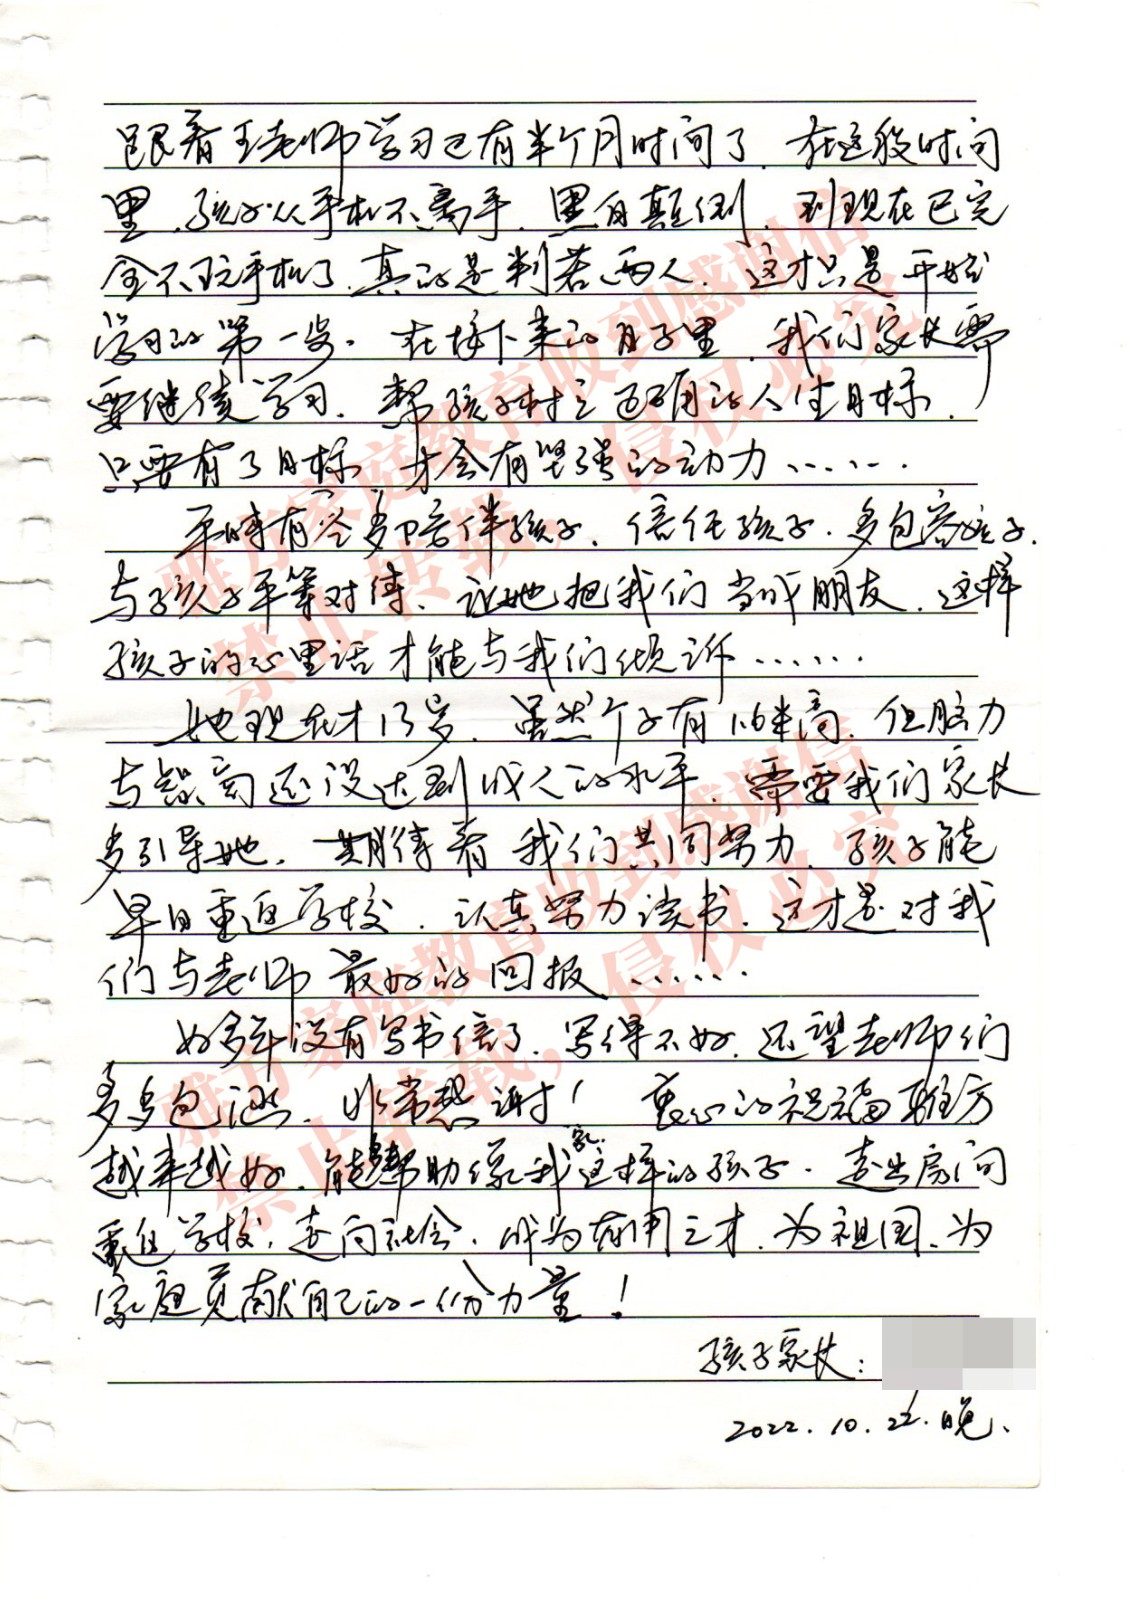 跟着王老师学习已有半个月时间了.在这段时间
里.孩子从手机不离手.黑白颠倒.到现在已完
全不玩手机了.真的是判若两人.这才只是开始
学习的第一步.在接下来的日子里.我们家长需
要继续学习.帮孩子树立正确的人生目标.
只要有了目标 才会有坚强的动力……
平时有空多陪伴孩子.信任孩子.多包容孩子.
与孩子平等对待、让她把我们当成朋友.这样
孩子的心里话才能与我们倾诉……
她现在才13岁.虽然个子有1米6高.但脑力
与智商还没达到成人的水平.需要我们家长
多引导她.期待着我们共同努力.孩子能
早日重返学校.认真努力读书.这才是对我
们与老师最好的回报……
好多年没有写书信了.写得不好.还望老师们
多多包涵.非常感谢！衷心的祝福雅方
越来越好.能帮助像我家这样的孩子.走出房间
重返学校.走向社会.成为有用之才.为祖国.为
家庭贡献自己的一份力量！
孩子家长：
2022.10.22.晚.
雅方家庭教育收到感谢信
禁止转载，侵权必究
雅方家庭教育收到感谢信
禁止转载，侵权必究